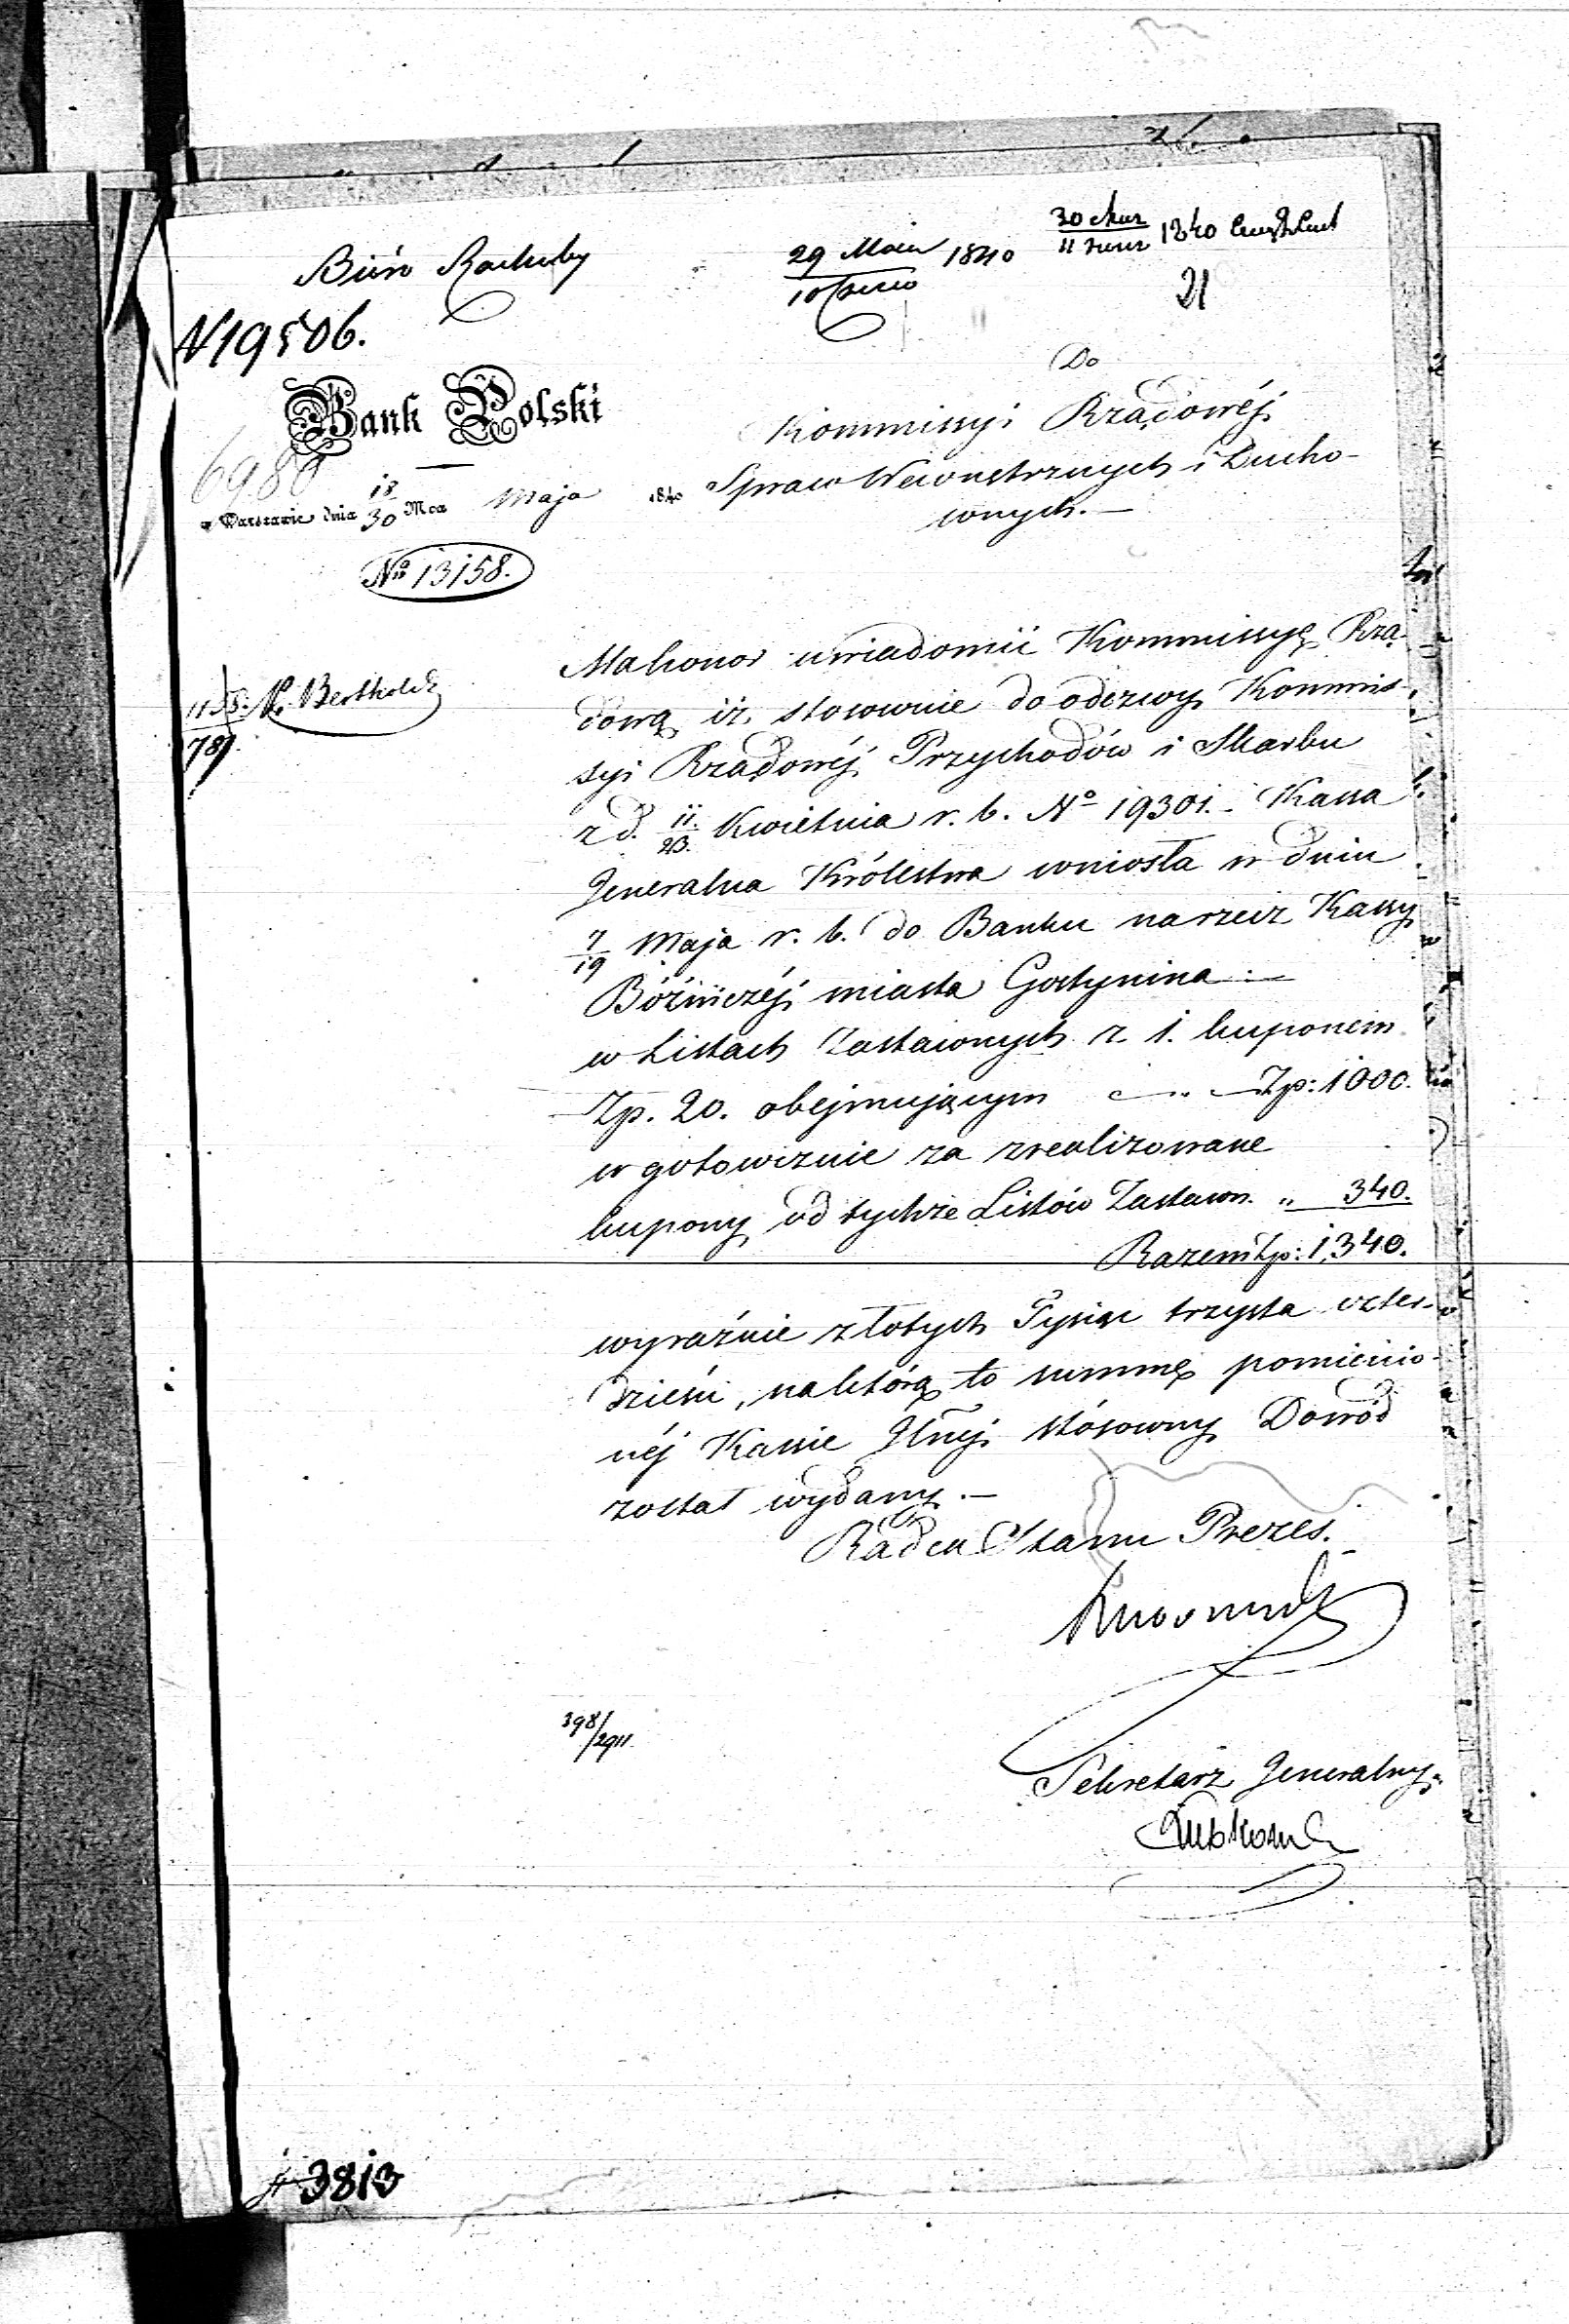 Biuro Rachuby
29 Maia / 10 Czerw 1840
30 / 11 1840
21
N 19506.
Bank Polski
6980
w Warszawie dnia 18/30 Mca Maja 1840
No 13158.
Do
Kommissyi Rządowéj
Spraw Wewnętrznych i Ducho-
wnych. —
N. Berthold
789.
Ma honor uwiadomić Kommissyę Rzą-
dową iż, stosownie do odezwy Kommis-
syi Rządowéj Przychodów i Skarbu
z d. 11/23. Kwietnia r. b. No 19301. - Kassa
Jeneralna Królestwa wniosła w dniu
7/19 Maja r. b. do Banku na rzecz Kassy
Bóżniczéj miasta Gostynina: —
w Listach Zastawnych z 1. kuponem
Zp. 20. obejmującym — „ — Zp: 1000.
w gotowiznie za zrealizowane
kupony od tychże Listów Zastawn. „ 340.
Razem Zp: 1,340.
wyraźnie złotych Tysiąc trzysta czter-
dzieści, na którą to summę pomienio-
néj Kassie Jłnéj stósowny Dowód
został wydany. —
Radca Stanu Prezes.
398/2911.
Sekretarz Jeneralny
3813